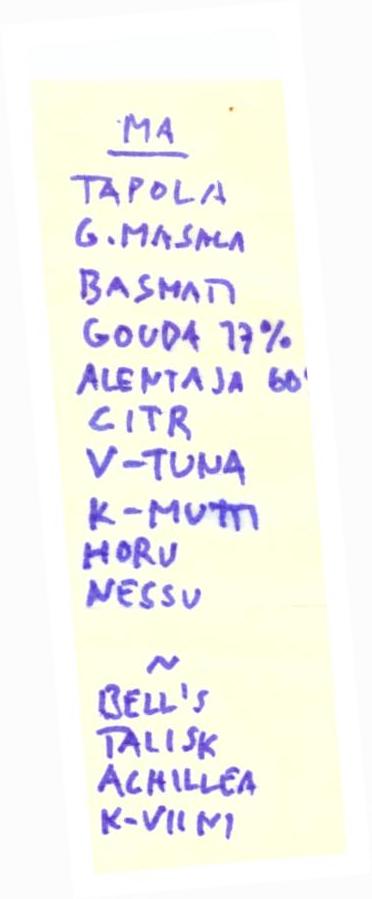 MA
TAPOLA
G.MASALA
BASMATI
GOUDA 17%
ALENTAJA 60
CITR
V-TUNA
K-MUTTI
HORU
NESSU
~
BELL'S
TALISK
ACHILLEA
K-VIINI